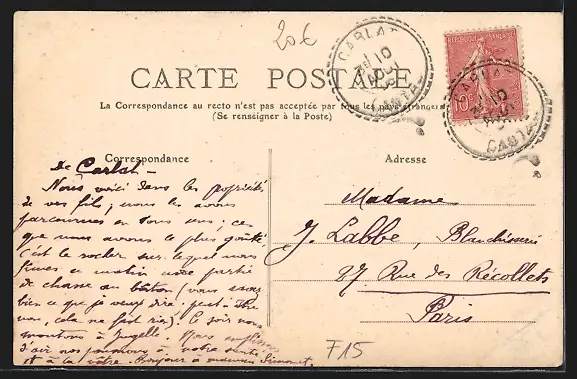 20€
CARLAT
10
CANTAL
RÉPUBLIQUE FRANÇAISE
10c
CARLAT
10
CANTAL
CARTE POSTALE
La Correspondance au recto n'est pas acceptée par tous les pays étrangers
(Se renseigner à la Poste)
Correspondance
Adresse
de Carlat —
Nous voici dans les propriétés
de vos fils; nous les avons
parcourues en tous sens; ce
que nous avons le plus goûté
c'est le rocher sur lequel nous
fîmes ce matin notre partie
de chasse au bâton (vous savez
bien ce que je veux dire: peut-être
non, cela ne fait rien). Ce soir nous
montons à
d'air nos poumons à votre santé
et à la vôtre. Bonjour à
Madame
J. Labbe, Blanchisserie
27 Rue des Récollets
Paris
F15